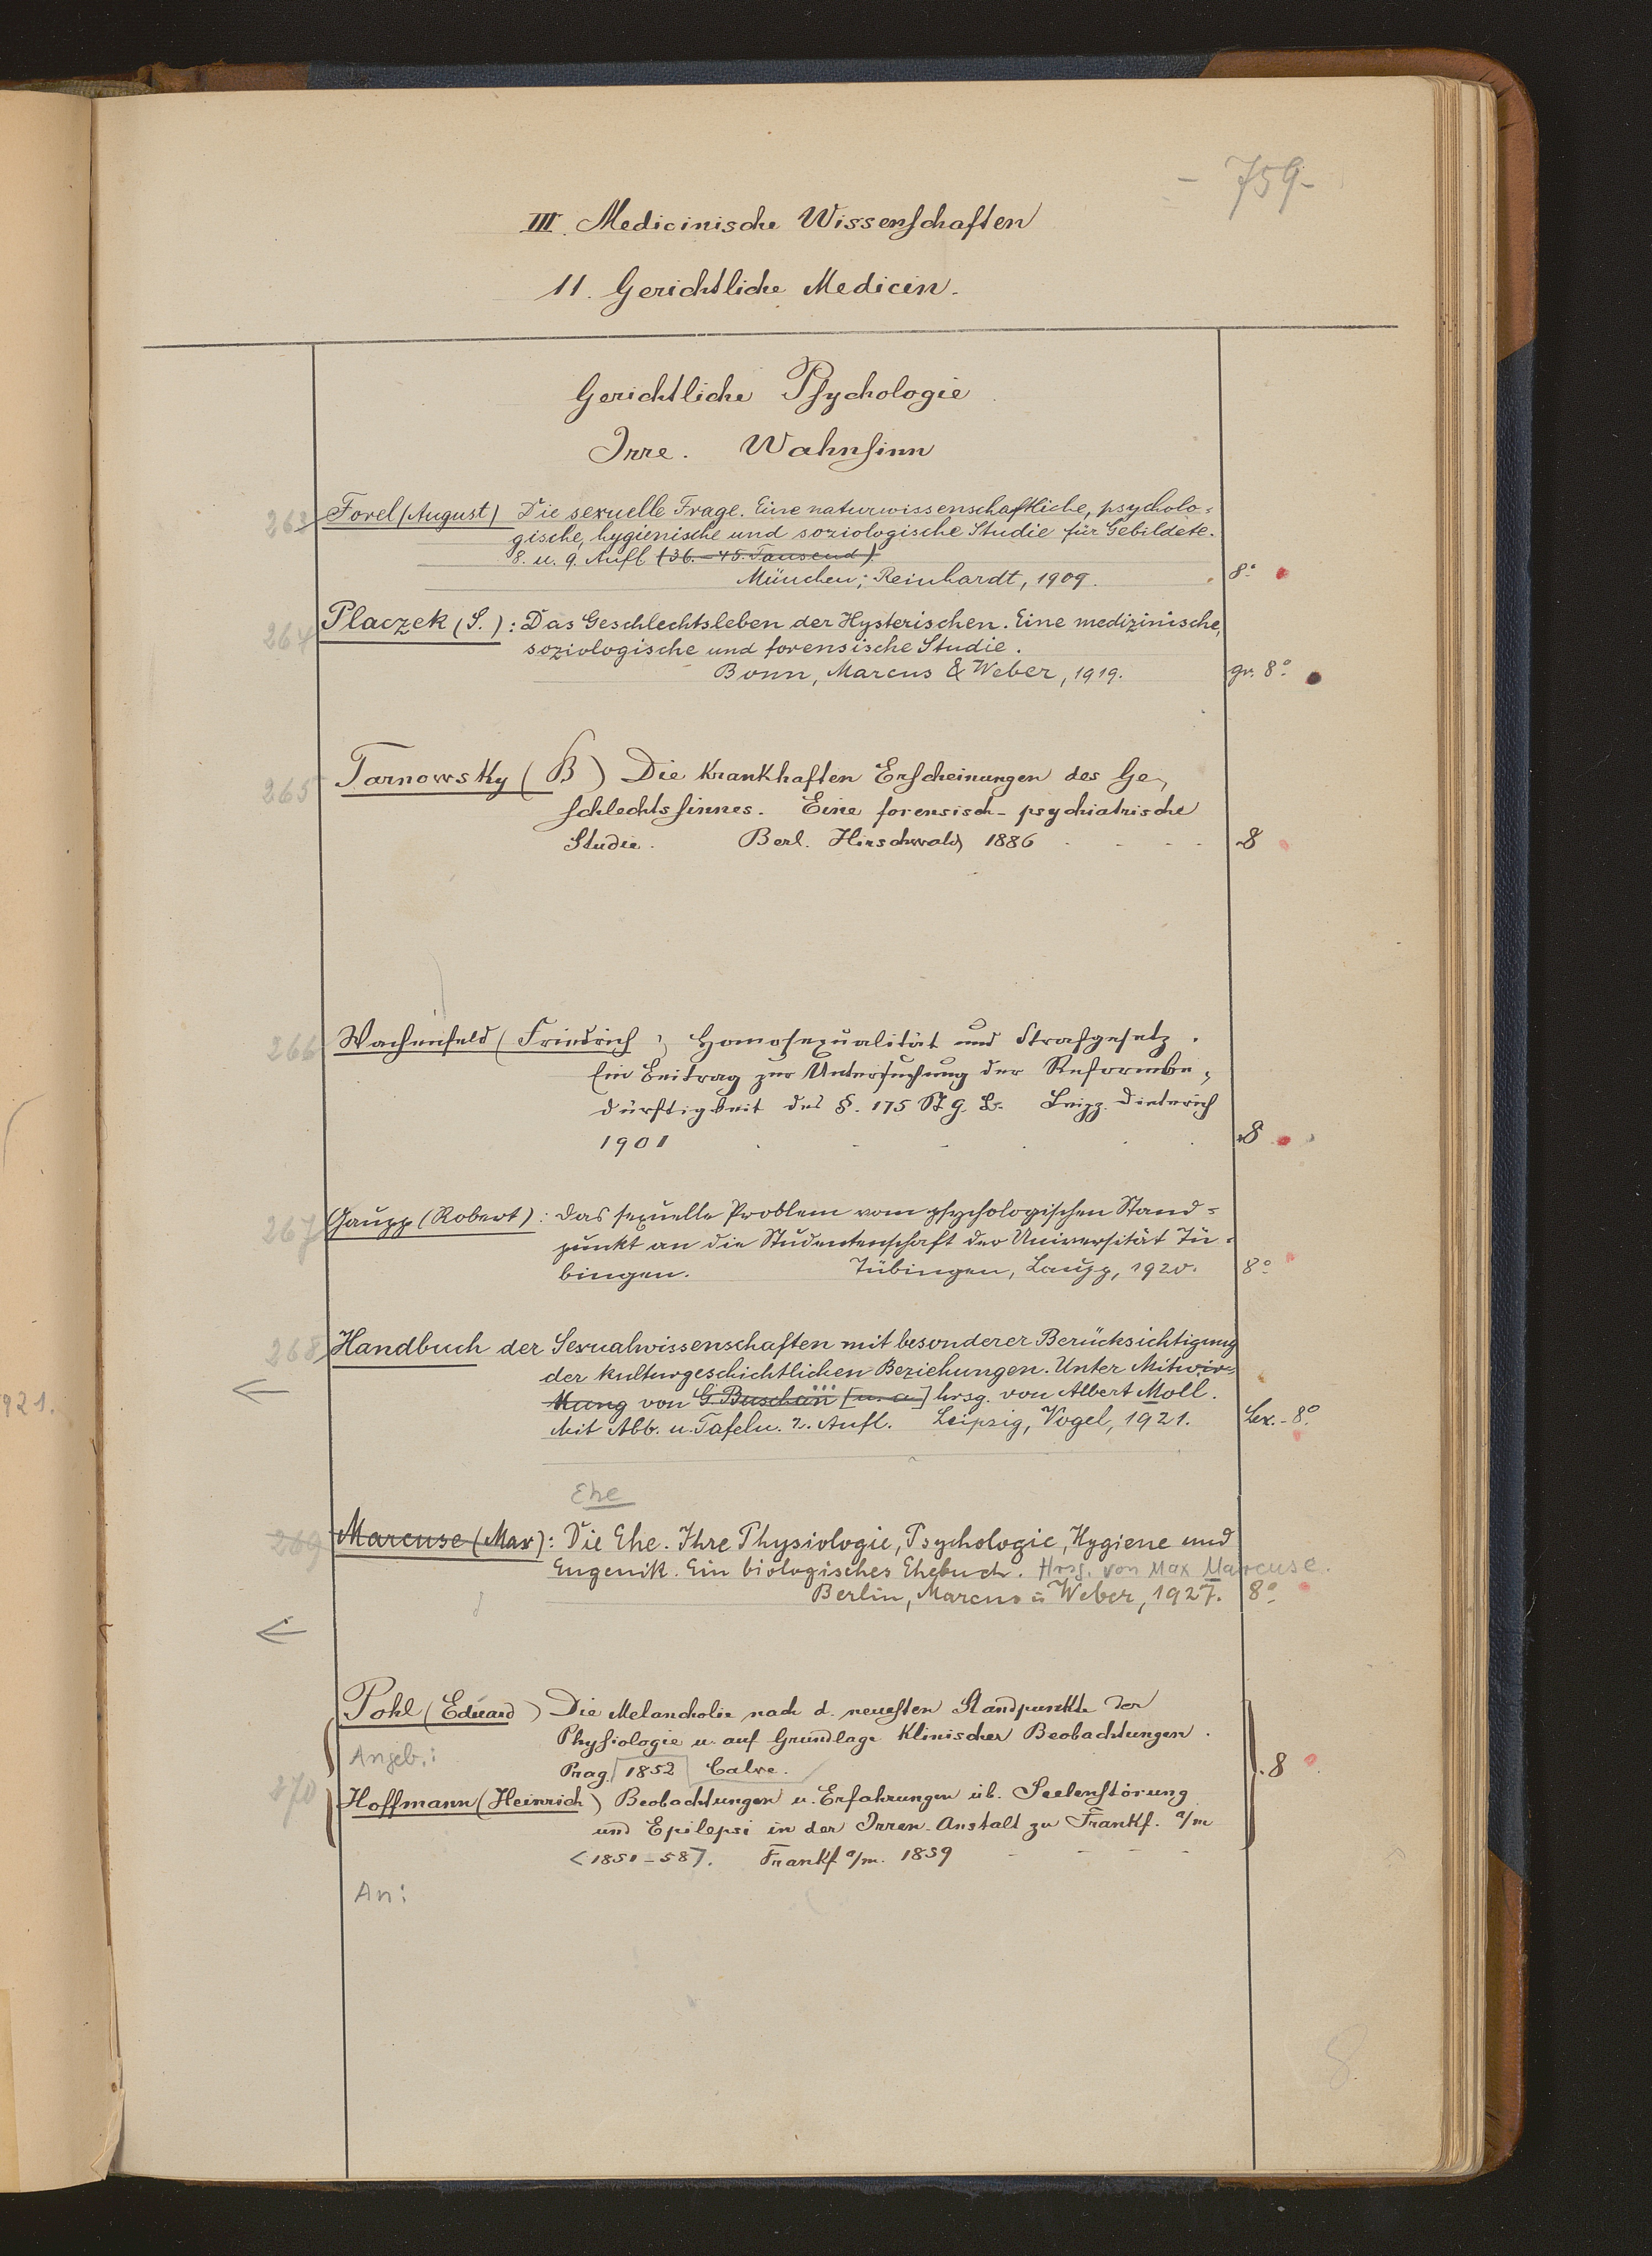 - 759-
III. Medicinische Wissenschaften
11. Gerichtliche Medicin.
Gerichtliche Psychologie
Irre. Wahnsinn
263 Forel (August) Die sexuelle Frage. Eine naturwissenschaftliche, psycholo-
gische, hygienische und soziologische Studie für Gebildete.
8. u. 9. Aufl. (36.-45. Tausend).
München; Reinhardt, 1909. 8°
264 Placzek (S.): Das Geschlechtsleben der Hysterischen. Eine medizinische,
soziologische und forensische Studie.
Bonn, Marcus & Weber, 1919. gr. 8°
265 Tarnowsky (B) Die krankhaften Erscheinungen des Ge-
schlechtssinnes. Eine forensisch-psychiatrische
Studie. Berl. Hirschwald 1886 8
266 Wachenfeld (Friedrich) Homosexualität und Strafgesetz.
Ein Beitrag zur Untersuchung der Reformbe-
dürftigkeit des §. 175 St. G. B. Leipz. Dieterich
1901 8
267 Gaupp (Robert): Das sexuelle Problem vom psychologischen Stand-
punkt an die Studentenschaft der Universität Tü-
bingen. Tübingen, Laupp, 1920. 8°
268 Handbuch der Sexualwissenschaften mit besonderer Berücksichtigung
der kulturgeschichtlichen Beziehungen. Unter Mitwir-
kung von G. Buschan [u. a.] hrsg. von Albert Moll.
Mit Abb. u. Tafeln. 2. Aufl. Leipzig, Vogel, 1921. Lex.-8°
921.
Ehe
269 Marcuse (Max): Die Ehe. Ihre Physiologie, Psychologie, Hygiene und
Eugenik. Ein biologisches Ehebuch. Hrsg. von Max Marcuse.
Berlin, Marcus u. Weber, 1927. 8°
Pohl (Eduard) Die Melancholie nach d. neuesten Standpunkte der
Physiologie u. auf Grundlage klinischer Beobachtungen.
Angeb.:
Prag. 1852 Calve. 8
270 Hoffmann (Heinrich) Beobachtungen u. Erfahrungen üb. Seelenstörung
und Epilepsi in der Irren-Anstalt zu Frankf. a/m
<1851-58>. Frankf a/m. 1859
An:
8